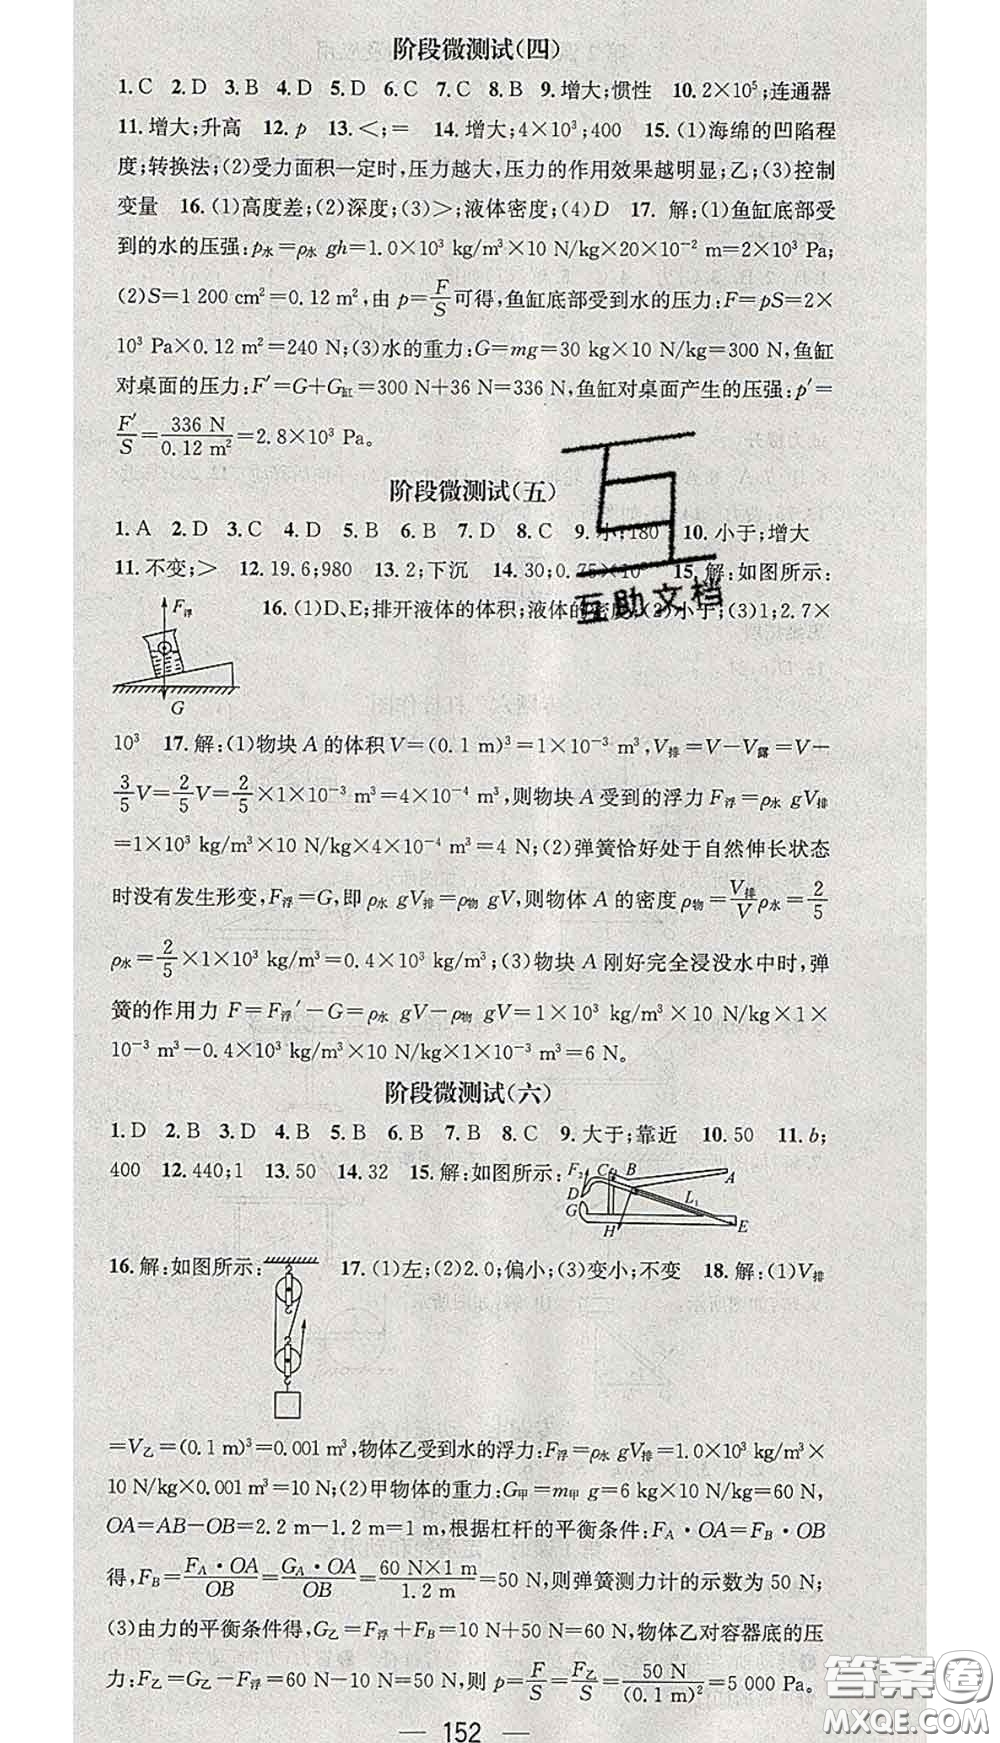 阶段微测试(四)
1. C 2. D 3. B 4. D 5. D 6. C 7. C 8. B 9. 增大;惯性 10. 2×10⁵;连通器
11. 增大;升高 12. p 13. <;= 14. 增大;4×10³;400 15. (1)海绵的凹陷程
度;转换法;(2)受力面积一定时,压力越大,压力的作用效果越明显;乙;(3)控制
变量 16. (1)高度差;(2)深度;(3)>;液体密度;(4)D 17. 解:(1)鱼缸底部受
到的水的压强:p水=ρ水 gh=1.0×10³ kg/m³×10 N/kg×20×10⁻² m=2×10³ Pa;
(2)S=1 200 cm²=0.12 m²,由 p=F/S可得,鱼缸底部受到水的压力:F=pS=2×
10³ Pa×0.12 m²=240 N;(3)水的重力:G=mg=30 kg×10 N/kg=300 N,鱼缸
对桌面的压力:F′=G+G缸=300 N+36 N=336 N,鱼缸对桌面产生的压强:p′=
F′/S=336 N/0.12 m²=2.8×10³ Pa。
阶段微测试(五)
1. A 2. D 3. C 4. D 5. B 6. B 7. D 8. C 9. 小;180 10. 小于;增大
11. 不变;> 12. 19.6;980 13. 2;下沉 14. 30;0.75×10 15. 解:如图所示:
F浮
16. (1)D、E;排开液体的体积;液体的密度;(2)小于;(3)1;2.7×
G
10³ 17. 解:(1)物块 A 的体积 V=(0.1 m)³=1×10⁻³ m³,V排=V-V露=V-
3/5V=2/5V=2/5×1×10⁻³ m³=4×10⁻⁴ m³,则物块 A 受到的浮力 F浮=ρ水 gV排
=1×10³ kg/m³×10 N/kg×4×10⁻⁴ m³=4 N;(2)弹簧恰好处于自然伸长状态
时没有发生形变,F浮=G,即 ρ水 gV排=ρ物 gV,则物体 A 的密度 ρ物=V排/Vρ水=2/5
ρ水=2/5×1×10³ kg/m³=0.4×10³ kg/m³;(3)物块 A 刚好完全浸没水中时,弹
簧的作用力 F=F浮′-G=ρ水 gV-ρ物 gV=1×10³ kg/m³×10 N/kg×1×
10⁻³ m³-0.4×10³ kg/m³×10 N/kg×1×10⁻³ m³=6 N。
阶段微测试(六)
1. D 2. B 3. D 4. B 5. B 6. B 7. B 8. C 9. 大于;靠近 10. 50 11. b;
400 12. 440;1 13. 50 14. 32 15. 解:如图所示:
F₂ C B A
D L₁
G H E
16. 解:如图所示: 17. (1)左;(2)2.0;偏小;(3)变小;不变 18. 解:(1)V排
=V乙=(0.1 m)³=0.001 m³,物体乙受到水的浮力:F浮=ρ水 gV排=1.0×10³ kg/m³×
10 N/kg×0.001 m³=10 N;(2)甲物体的重力:G甲=m甲 g=6 kg×10 N/kg=60 N,
OA=AB-OB=2.2 m-1.2 m=1 m,根据杠杆的平衡条件:F_A·OA=F_B·OB
得,F_B=F_A·OA/OB=G_A·OA/OB=60 N×1 m/1.2 m=50 N,则弹簧测力计的示数为 50 N;
(3)由力的平衡条件得,G乙=F浮+F_B=10 N+50 N=60 N,物体乙对容器底的压
力:F乙=G乙-F浮=60 N-10 N=50 N,则 p=F/S=F乙/S=50 N/(0.1 m)²=5 000 Pa。
152
互助文档
答案圈
MXQE.COM